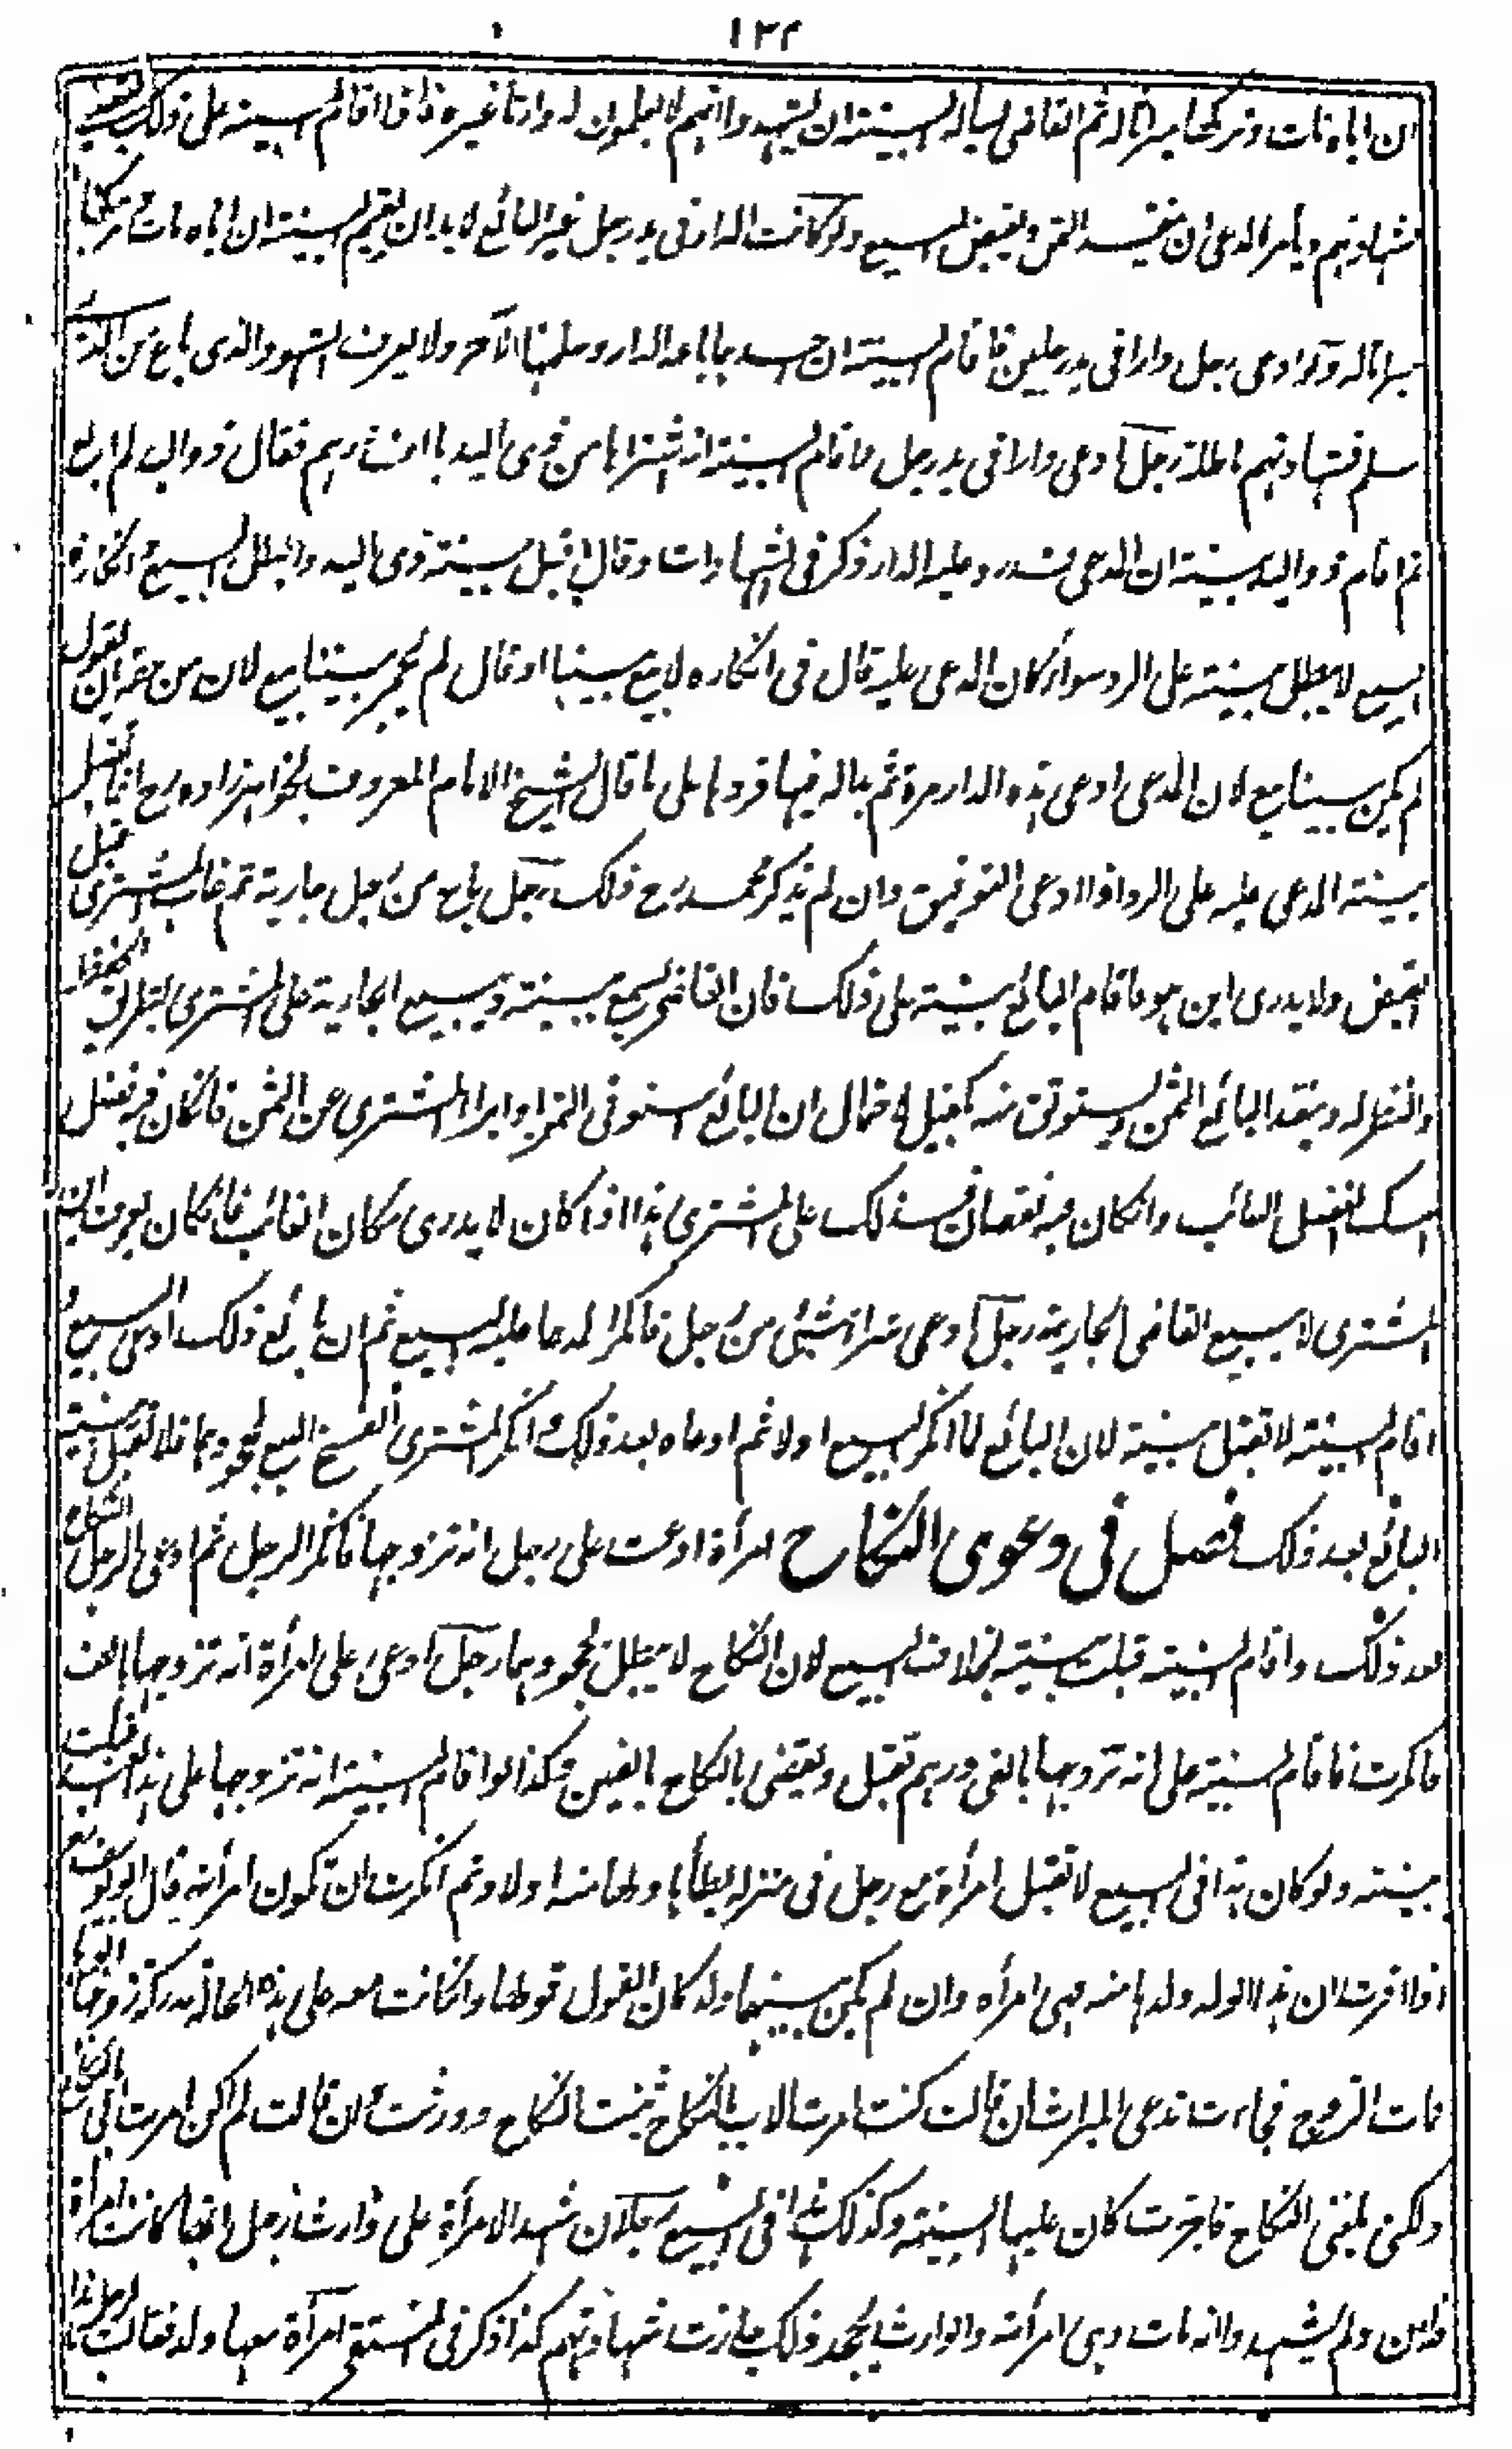 ١٣٢
ان اباه مات وتركها ميراثا له ثم القاضي يسأله البينة ان يشهدوا انهم لا يعلمون له وارثا غيره فاذا اقام البينة على ذلك يقبل
شهادتهم ويأمر المدعى ان ينقد الثمن ويقبض المبيع ولو كانت الدار في يد رجل غير البائع لا بد ان يقيم البينة ان اباه مات وتركها
ميراثا له ولو ادعى رجل دارا في يد رجلين فاقام البينة ان احدهما باعه الدار وسلمها الآخر ولا يعرف الشهود الذى باع من الذى
سلم فشهادتهم باطلة رجل ادعى دارا في يد رجل فاقام البينة انه اشتراها من ذى اليد بالف درهم فقال ذو اليد لم ابع
ثم اقام ذو اليد بينة ان المدعى رد عليه الدار ذكر في الشهادات وقال اقبل بينة ذى اليد وابطل البيع وانكاره
البيع لا يبطل بينته على الرد سواء كان المدعى عليه قال في انكاره لا بيع بيننا او قال لم يجر بيننا بيع لان من حقه ان يقول
لم يكن بيننا بيع لان المدعى ادعى هذه الدار مرة ثم بدا له فيها فردها على ما قال الشيخ الامام المعروف بخواهر زاده رح انما تقبل
بينة المدعى عليه على الرد اذا ادعى التوفيق وان لم يذكر محمد رح ذلك رجل باع من رجل جارية ثم غاب المشترى قبل
القبض ولا يدرى اين هو فاقام البائع بينة على ذلك فان القاضى يسمع بينته ويبيع الجارية على المشترى بطريق الحفظ
والنظر له وينقد البائع الثمن ويستوثق منه بكفيل لاحتمال ان البائع استوفى الثمن او ابرا المشترى عن الثمن فان كان فيه فضل
امسك الفضل الغائب وان كان فيه نقصان فذلك على المشترى هذا اذا كان لا يدرى مكان الغائب فان كان يعرف
المشترى لا يبيع القاضى الجارية رجل ادعى شراء شئ من رجل فانكر المدعا عليه البيع ثم ان بائع ذلك ادعى البيع و
اقام البينة لا تقبل بينته لان البائع لما انكر البيع اولا ثم ادعاه بعد ذلك وانكر المشترى انفسخ البيع لجحودهما فلا تقبل بينة
البائع بعد ذلك فصل فى دعوى النكاح امرأة ادعت على رجل انه تزوجها فانكر الرجل ثم ادعى الرجل النكاح
بعد ذلك واقام البينة قبلت بينته بخلاف البيع لان النكاح لا يبطل بجحودهما رجل ادعى على امرأة انه تزوجها بالف
فانكرت فاقام البينة على انه تزوجها بالفى درهم تقبل ويقضى بالنكاح بالفين وكذا لو اقام البينة انه تزوجها على هذا العبد قبلت
بينته ولو كان هذا في البيع لا تقبل امرأة مع رجل في منزله يطأها ولها منه اولاد ثم انكرت ان تكون امرأته قال ابو يوسف رح
اذا اقرت ان هذا الولد ولدها منه فهى امرأته وان لم يكن بينهما ولد كان القول قولها وان كانت معه على هذه الحالة
مات الزوج فجاءت تدعى الميراث ان قالت كنت امرت الاب بالنكاح ثبت النكاح وورثت وان قالت لم اكن امرت ابى بالنكاح
ولكن بلغنى النكاح فاجزت كان عليها البينة وكذلك هذا في البيع رجلان شهدا لامرأة على وارث رجل انها كانت امرأة
ولم يشهدوا انه مات وهى امرأته والوارث يجحد ذلك جازت شهادتهم كذا ذكر في المنتقى امرأة معها ولد فقالت لرجل هذا